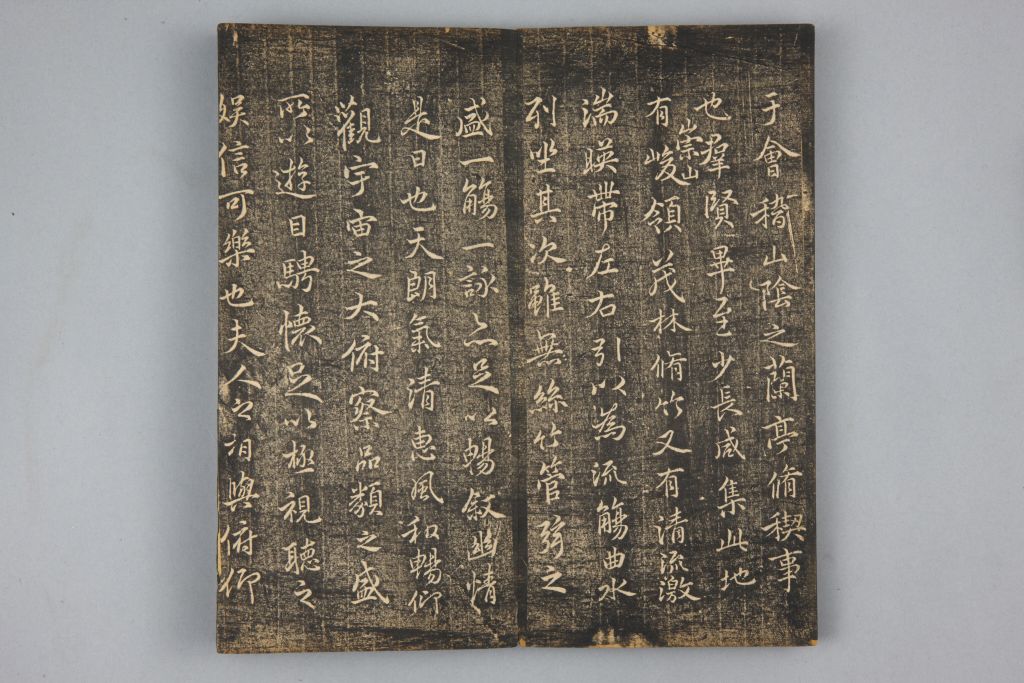 于會稽山陰之蘭亭脩稧事
也羣賢畢至少長咸集此地
有崇山峻領茂林脩竹又有清流激
湍暎帶左右引以為流觴曲水
列坐其次雖無絲竹管弦之
盛一觴一詠亦足以暢敘幽情
是日也天朗氣清惠風和暢仰
觀宇宙之大俯察品類之盛
所以遊目騁懷足以極視聽之
娛信可樂也夫人之相與俯仰